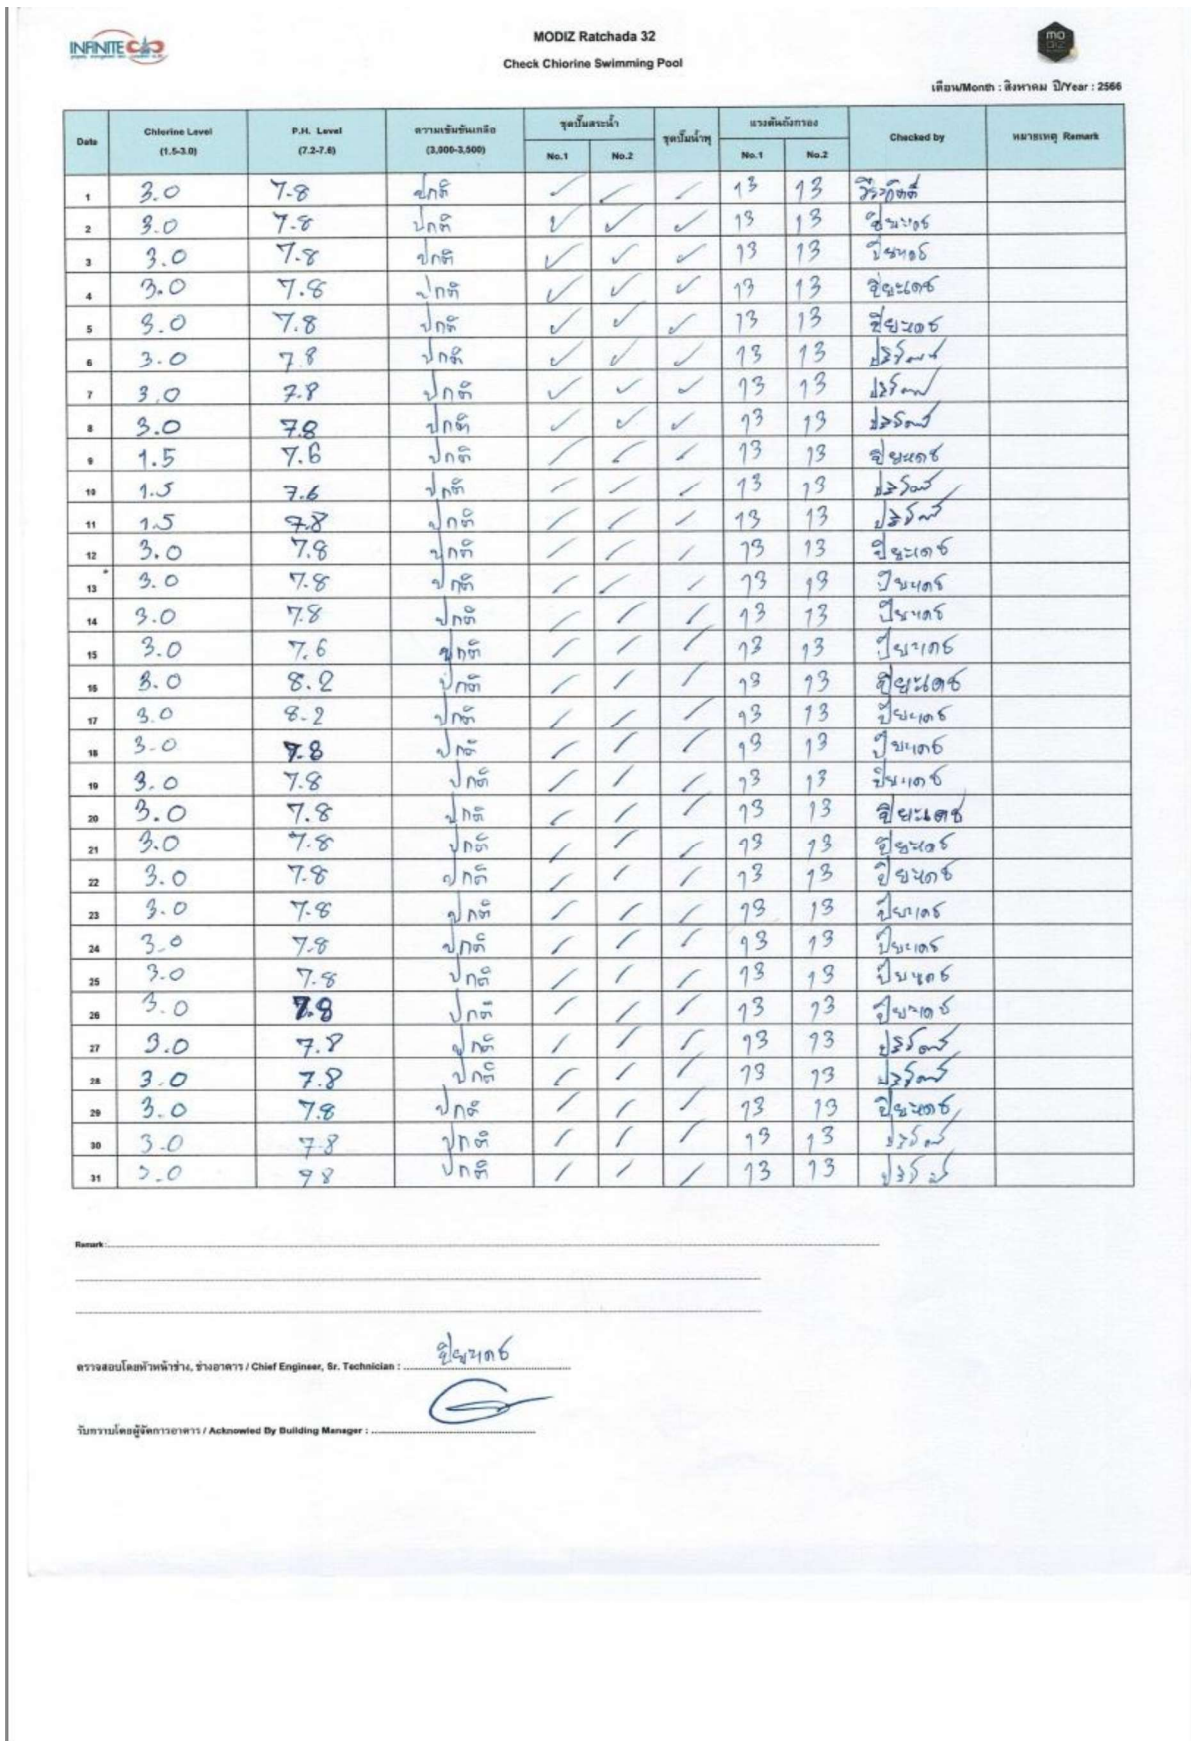 INFINITE
MODIZ Ratchada 32
mo
DIZ
Check Chlorine Swimming Pool
เดือน/Month : สิงหาคม ปี/Year : 2566
Date Chlorine Level P.H. Level ความเข้มข้นเกลือ ชุดปั๊มสระน้ำ ชุดปั๊มน้ำพุ แรงดันถังกรอง Checked by หมายเหตุ Remark
(1.5-3.0) (7.2-7.6) (3,000-3,500) No.1 No.2 No.1 No.2
1 3.0 7.8 ปกติ ✓ ✓ ✓ 13 13
2 3.0 7.8 ปกติ ✓ ✓ ✓ 13 13 ปิยะเดช
3 3.0 7.8 ปกติ ✓ ✓ ✓ 13 13 ปิยะเดช
4 3.0 7.8 ปกติ ✓ ✓ ✓ 13 13 ปิยะเดช
5 3.0 7.8 ปกติ ✓ ✓ ✓ 13 13 ปิยะเดช
6 3.0 7.8 ปกติ ✓ ✓ ✓ 13 13
7 3.0 7.8 ปกติ ✓ ✓ ✓ 13 13
8 3.0 7.8 ปกติ ✓ ✓ ✓ 13 13
9 1.5 7.6 ปกติ / / / 13 13 ปิยะเดช
10 1.5 7.6 ปกติ / / / 13 13
11 1.5 7.8 ปกติ / / / 13 13
12 3.0 7.8 ปกติ / / / 13 13 ปิยะเดช
13 3.0 7.8 ปกติ / / / 13 13 ปิยะเดช
14 3.0 7.8 ปกติ / / / 13 13 ปิยะเดช
15 3.0 7.6 ปกติ / / / 13 13 ปิยะเดช
16 3.0 8.2 ปกติ / / / 13 13 ปิยะเดช
17 3.0 8.2 ปกติ / / / 13 13 ปิยะเดช
18 3.0 7.8 ปกติ / / / 13 13 ปิยะเดช
19 3.0 7.8 ปกติ / / / 13 13 ปิยะเดช
20 3.0 7.8 ปกติ / / / 13 13 ปิยะเดช
21 3.0 7.8 ปกติ / / / 13 13 ปิยะเดช
22 3.0 7.8 ปกติ / / / 13 13 ปิยะเดช
23 3.0 7.8 ปกติ / / / 13 13 ปิยะเดช
24 3.0 7.8 ปกติ / / / 13 13 ปิยะเดช
25 3.0 7.8 ปกติ / / / 13 13 ปิยะเดช
26 3.0 7.8 ปกติ / / / 13 13 ปิยะเดช
27 3.0 7.8 ปกติ / / / 13 13
28 3.0 7.8 ปกติ / / / 13 13
29 3.0 7.8 ปกติ / / / 13 13 ปิยะเดช
30 3.0 7.8 ปกติ / / / 13 13
31 3.0 ปกติ / / / 13 13
Remark :
ตรวจสอบโดยหัวหน้าช่าง, ช่างอาคาร / Chief Engineer, Sr. Technician : ปิยะเดช
รับทราบโดยผู้จัดการอาคาร / Acknowled By Building Manager :